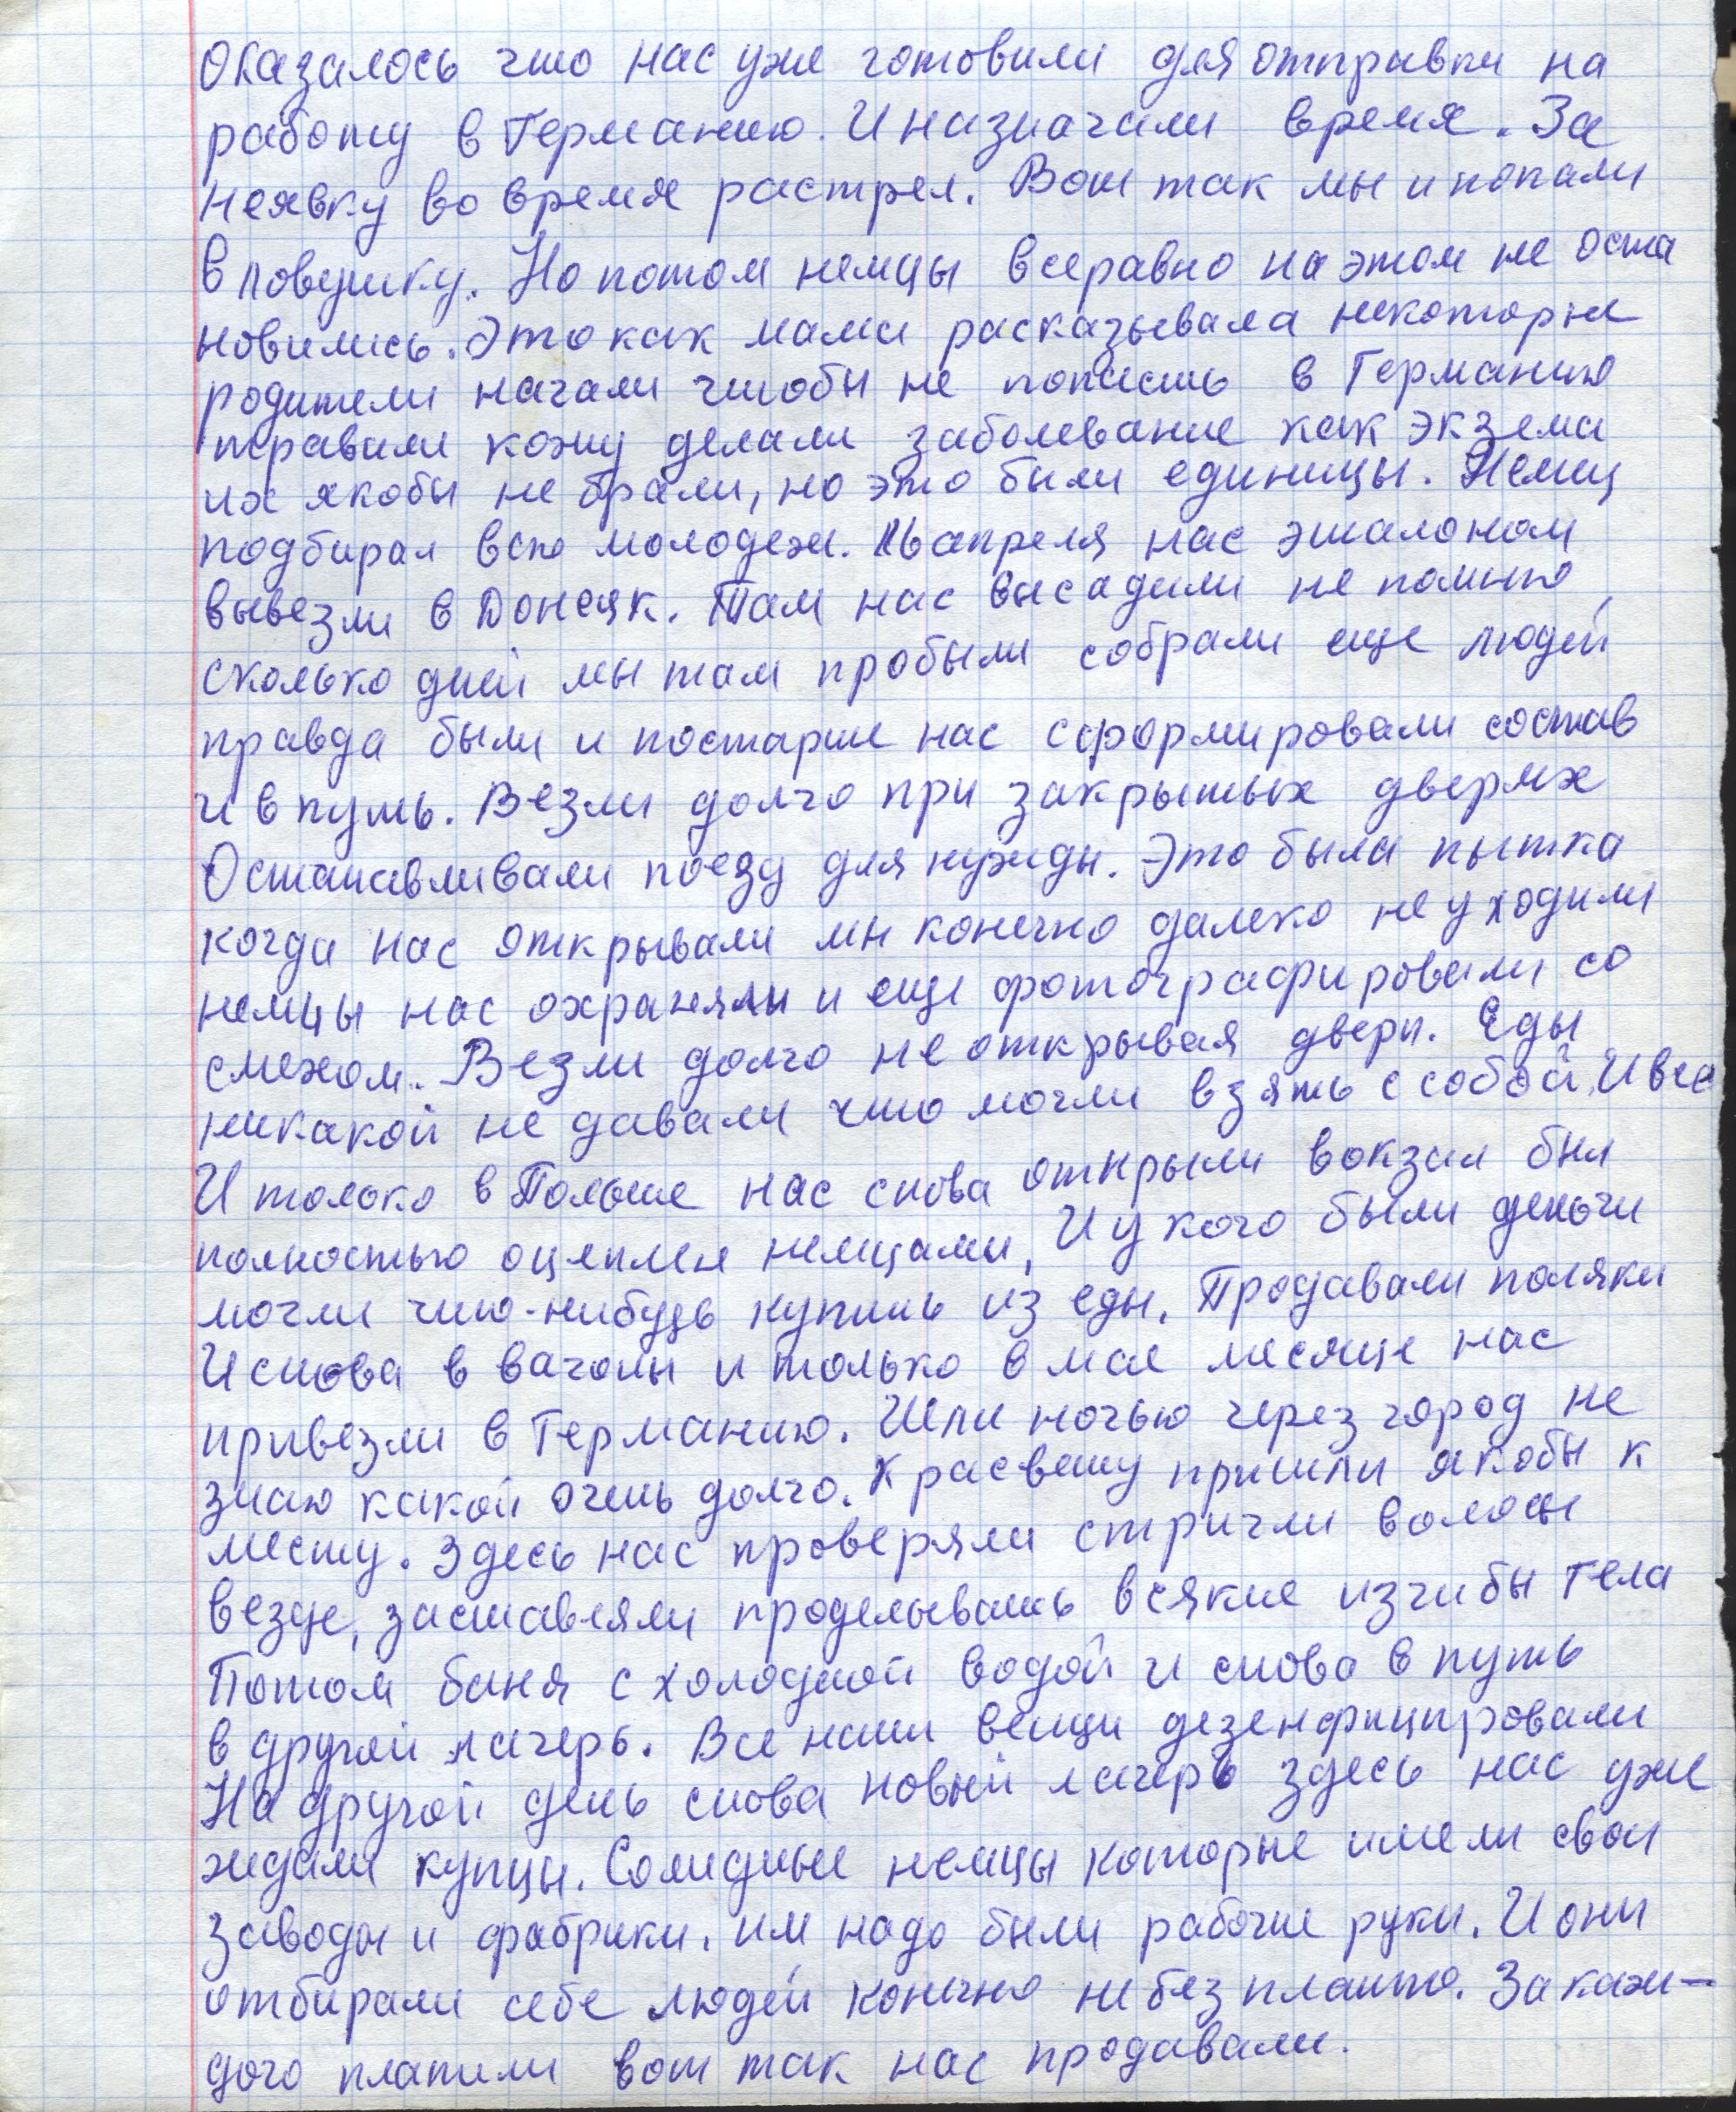 Оказалось что нас уже готовили для отправки на
работу в Германию. И назначали время. За
неявку во время растрел. Вот так мы и попали
в ловушку. Но потом немцы всеравно на этом не оста
новились. Это как мама расказывала некоторые
родители начали чтобы не попасть в Германию
травили кожу делали заболевание как экзема
их якобы не брали, но это были единицы. Немец
подбирал всю молодеж. апреля нас эшалоном
вывезли в Донецк. Там нас высадили не помню,
сколько дней мы там пробыли собрали еще людей
правда были и постарше нас сформировали состав
и в путь. Везли долго при закрытых дверях
Останавливали поезд для нужды. Это была пытка
когда нас открывали мы конечно далеко не уходили
немцы нас охраняли и еще фотографировали со
смехом. Везли долго не открывая двери. Еды
никакой не давали что могли взять с собой. И все
И только в Польше нас снова открыли вокзал был
полностью оцеплен немцами, И у кого были деньги
могли что-нибудь купить из еды. Продавали поляки
И снова в вагоны и только в мае месяце нас
привезли в Германию. Шли ночью через город не
знаю какой очень долго. К расвету пришли якобы к
месту. Здесь нас проверяли стригли волосы
везде, заставляли проделывать всякие изгибы тела
Потом баня с холодной водой и снова в путь
в другой лагерь. Все наши вещи дезенфицировали
На другой день снова новый лагерь здесь нас уже
ждали купцы. Солидные немцы которые имели свои
заводы и фабрики. им надо были рабочие руки. И они
отбирали себе людей конечно не безплатно. За каж-
дого платили вот так нас продавали.